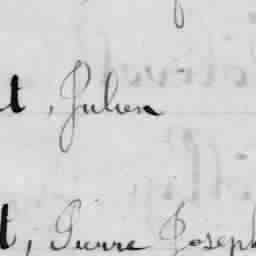 t, Julien
t, Pierre Joseph